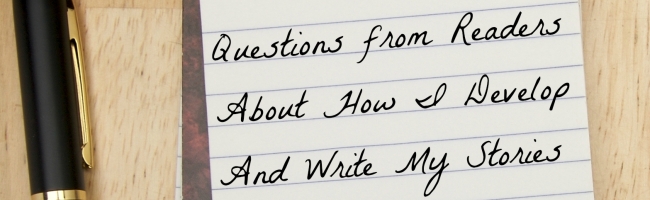 Questions from Readers
About How I Develop
And Write My Stories